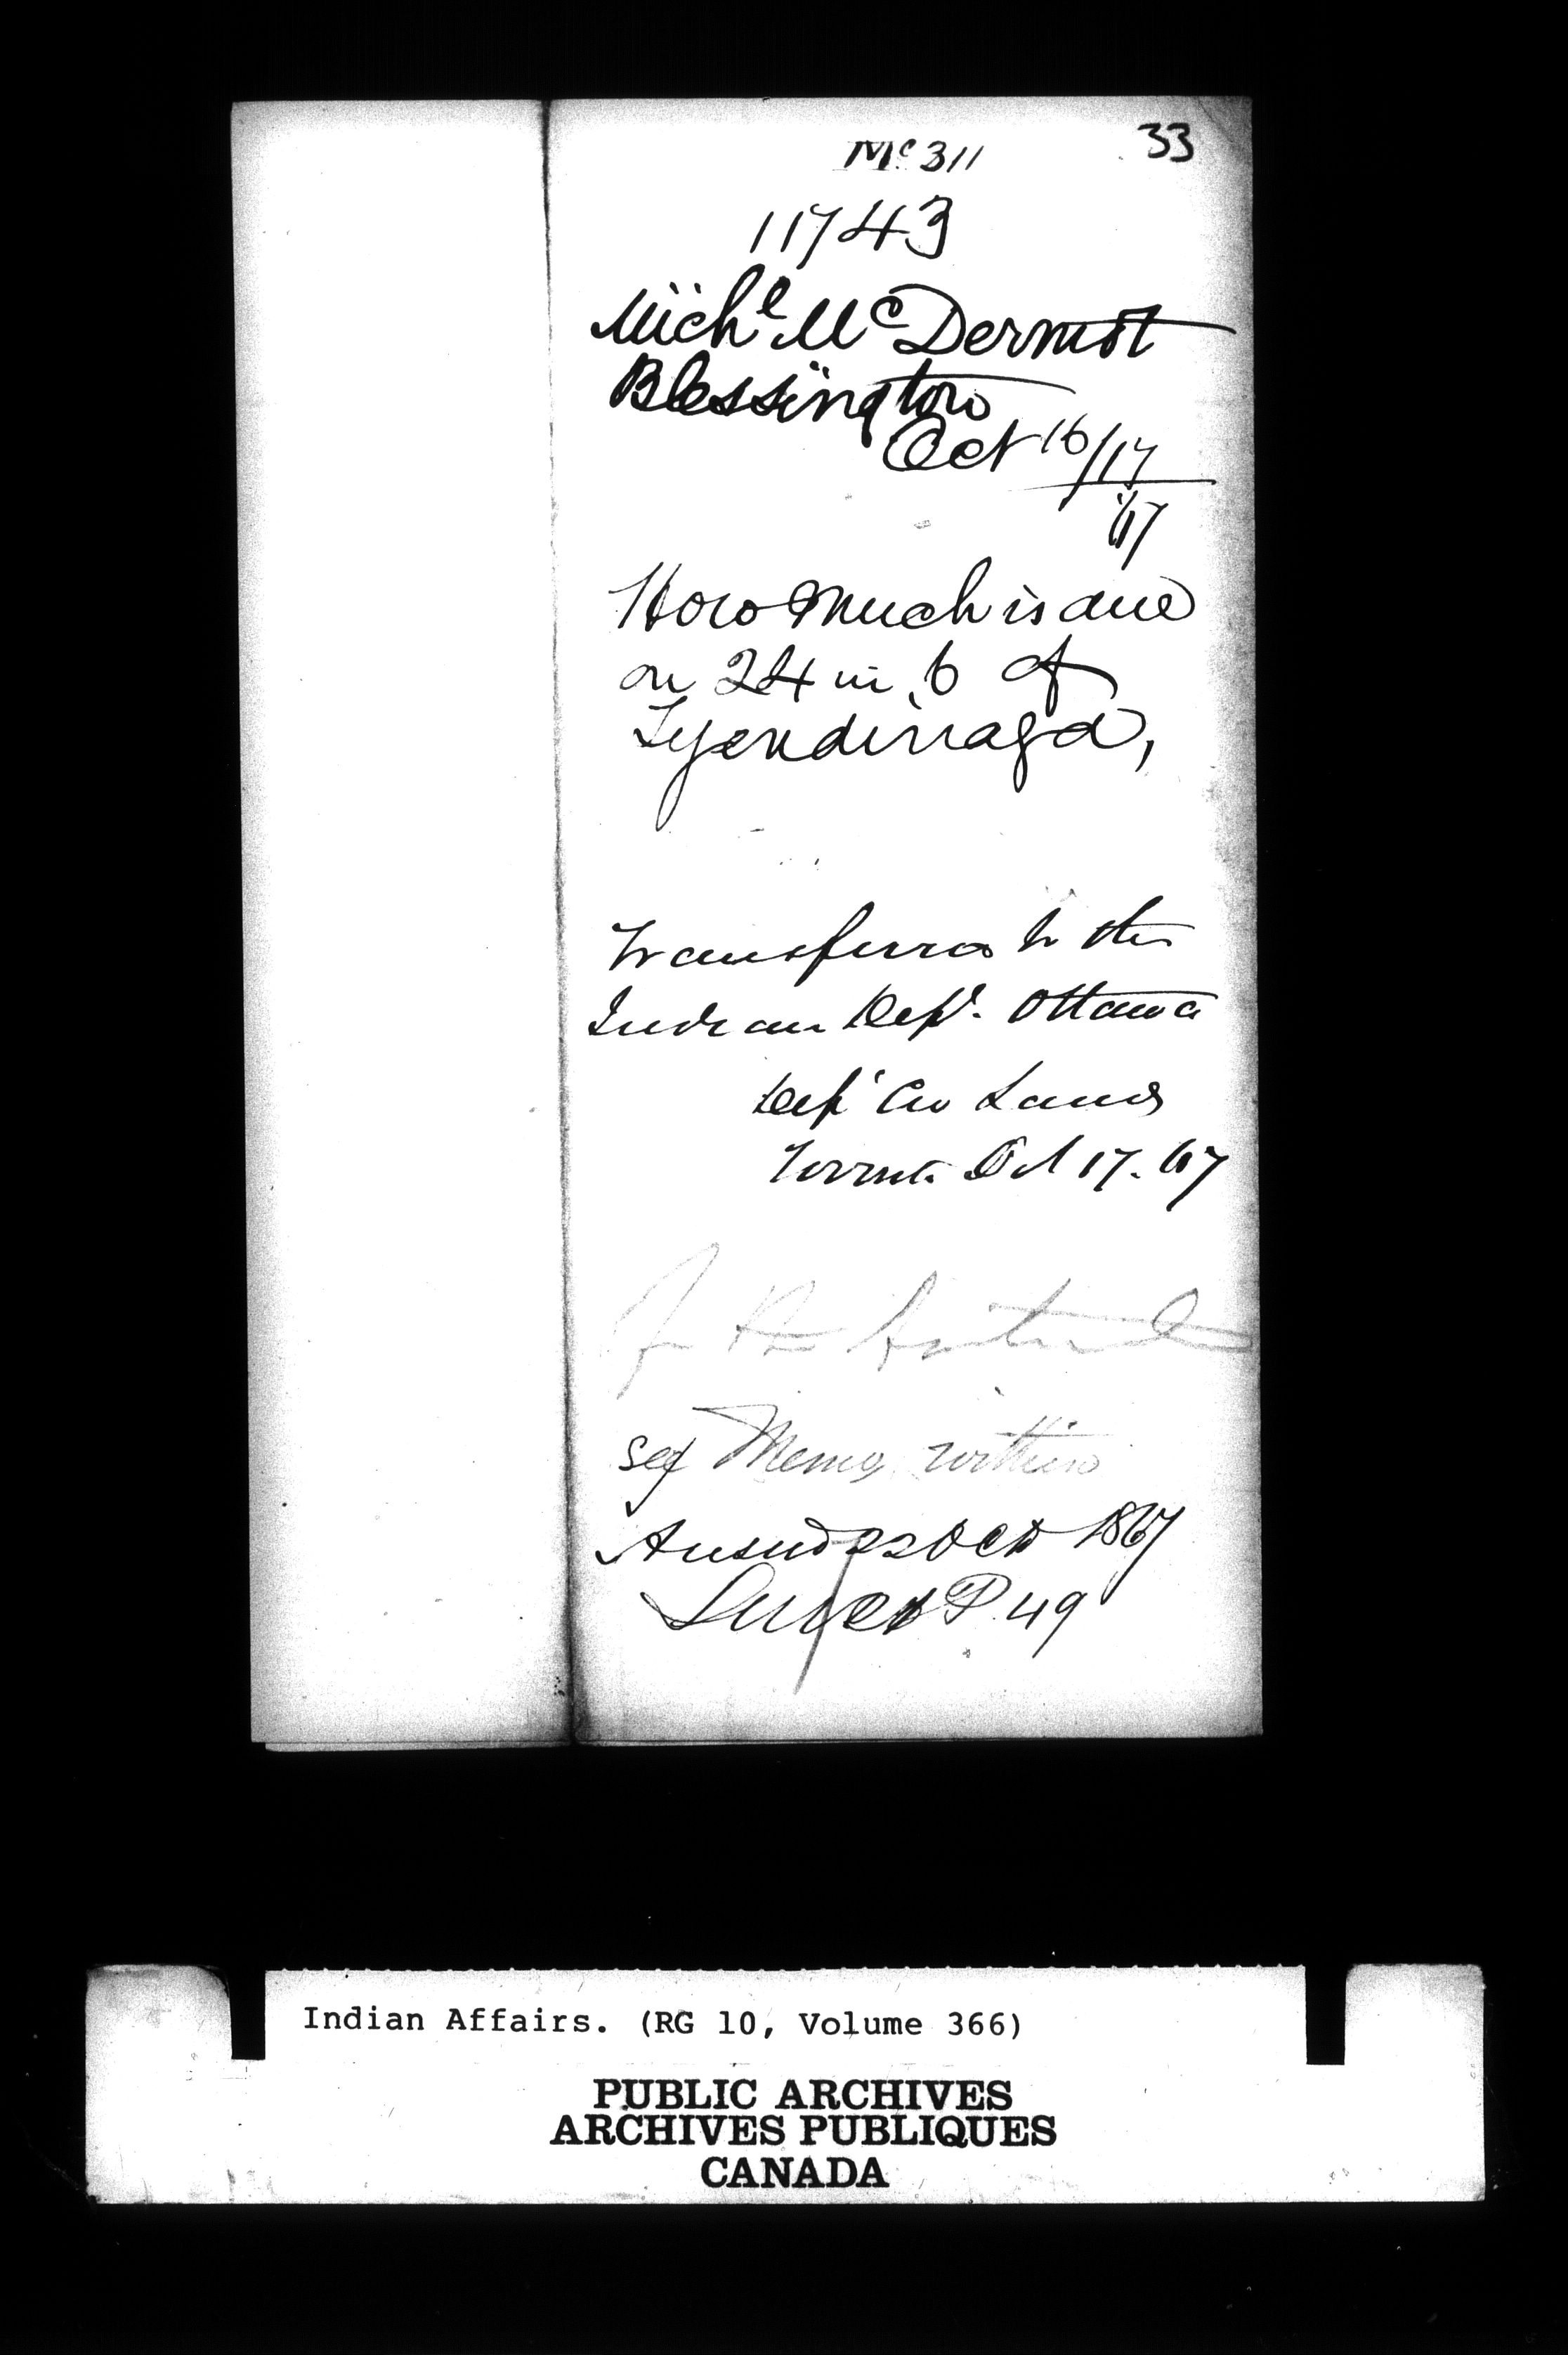 33
Mc 311
11743
Michl McDermot
Blessington
Oct 16/17
67
How Much is due
on 24 in 6 of
Tyendinaga,
Transferred to the
Indian Dept. Ottawa
Dept Cr Lands
Toronto Oct 17. 67
see Memo within
Answd 22 Oct 1867
P. 49
Indian Affairs. (RG 10, Volume 366)
PUBLIC ARCHIVES
ARCHIVES PUBLIQUES
CANADA